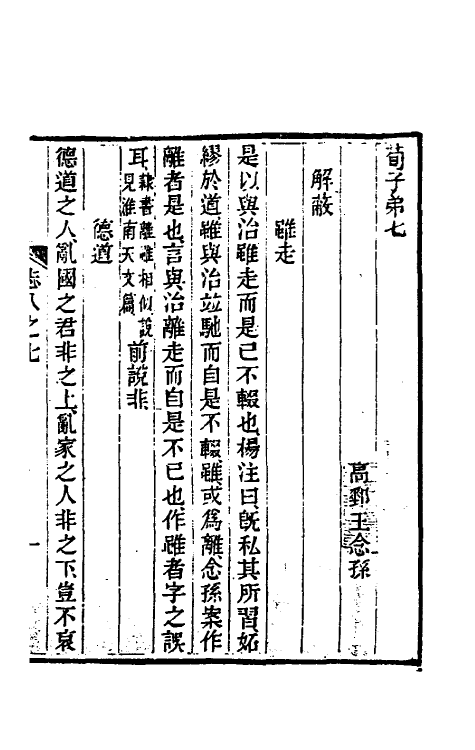 荀子弟七
高郵王念孫
解蔽
雖走
是以與治雖走而是己不輟也楊注曰旣私其所習妬
繆於道雖與治竝馳而自是不輟雖或爲離念孫案作
離者是也言與治離走而自是不已也作雖者字之誤
耳隸書離雖相似說見淮南天文篇前說非
德道
德道之人亂國之君非之上亂家之人非之下豈不哀
志八之七
一